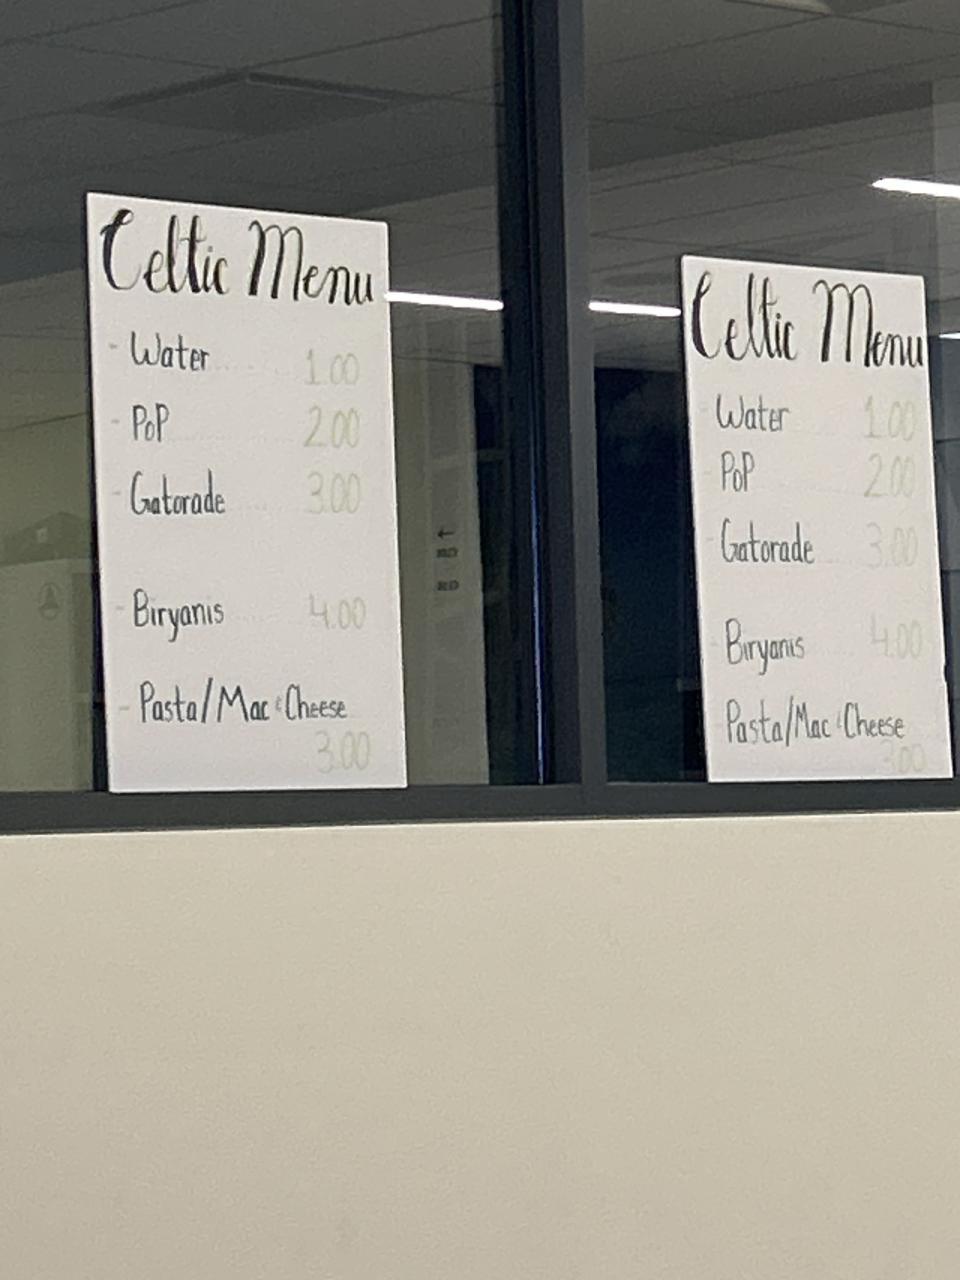 Celtic Menu
- Water 1.00
- PoP 2.00
- Gatorade 3.00
- Biryanis 4.00
- Pasta/Mac & Cheese
3.00
Celtic Menu
- Water 1.00
- PoP 2.00
- Gatorade 3.00
- Biryanis 4.00
- Pasta/Mac & Cheese
3.00